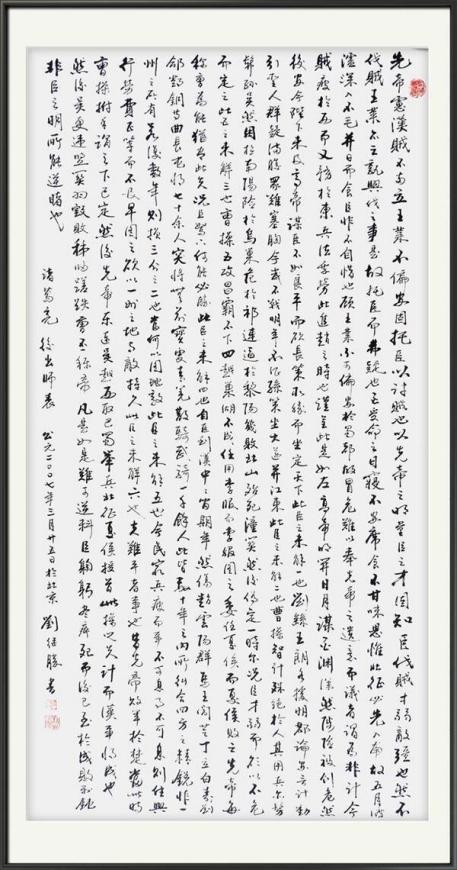 先帝慮漢賊不兩立王業不偏安故托臣以討賊也以先帝之明量臣之才固知臣伐賊才弱敵強也然不
伐賊王業亦亡孰與伐之是故托臣而弗疑也臣受命之日寢不安席食不甘味思惟北征宜先入南故五月渡
瀘深入不毛并日而食臣非不自惜也顧王業不可偏安於蜀都故冒危難以奉先帝之遺意而議者謂為非計今
賊疲於西而又務於東兵法乘勞此進趨之時也謹陳其事如左高帝明并日月謀臣淵深然涉險被創危然
後安今陛下未及高帝謀臣不如良平而欲長策取勝而坐定天下此臣之未解一也劉繇王朗各據州郡論安言計動
引聖人群疑滿腹眾難塞胸今歲不戰明年不征孫策坐大遂并江東此臣之未解二也曹操智計殊絕於人其用兵也髣
髴孫吳然困於南陽險於烏巢危於祁連逼於黎陽幾敗北山殆死潼關然後偽定一時爾況臣才弱而欲以不危
而定之此臣之未解三也曹操五攻昌霸不下四越巢湖不成任用李服而李服圖之委任夏侯而夏侯敗亡先帝每
稱曹為能猶有此失況臣駑下何能必勝此臣之未解四也自臣到漢中中間期年然喪趙雲陽群馬玉閻芝丁立白壽劉
郃鄧銅等曲長屯將七十餘人突將無前賨叟青羌散騎武騎一千餘人此皆數十年之內所糾合四方之精銳非一
州之所有若復數年則損三分之二也當何以圖敵此臣之未解五也今民窮兵疲而事不可息事不可息則住與
行勞費正等而不及早圖之欲以一州之地與敵持久此臣之未解六也夫難平者事也昔先帝敗軍於楚當此時
曹操拊手謂天下已定然後先帝東連吳越西取巴蜀舉兵北征夏侯授首此操之失計而漢事將成也
然後吳更違盟關羽毀敗秭歸蹉跌曹丕稱帝凡事如是難可逆料臣鞠躬盡瘁死而後已至於成敗利鈍
非臣之明所能逆睹也
諸葛亮後出師表 公元二〇〇七年三月廿五日於北京 劉繼勝書